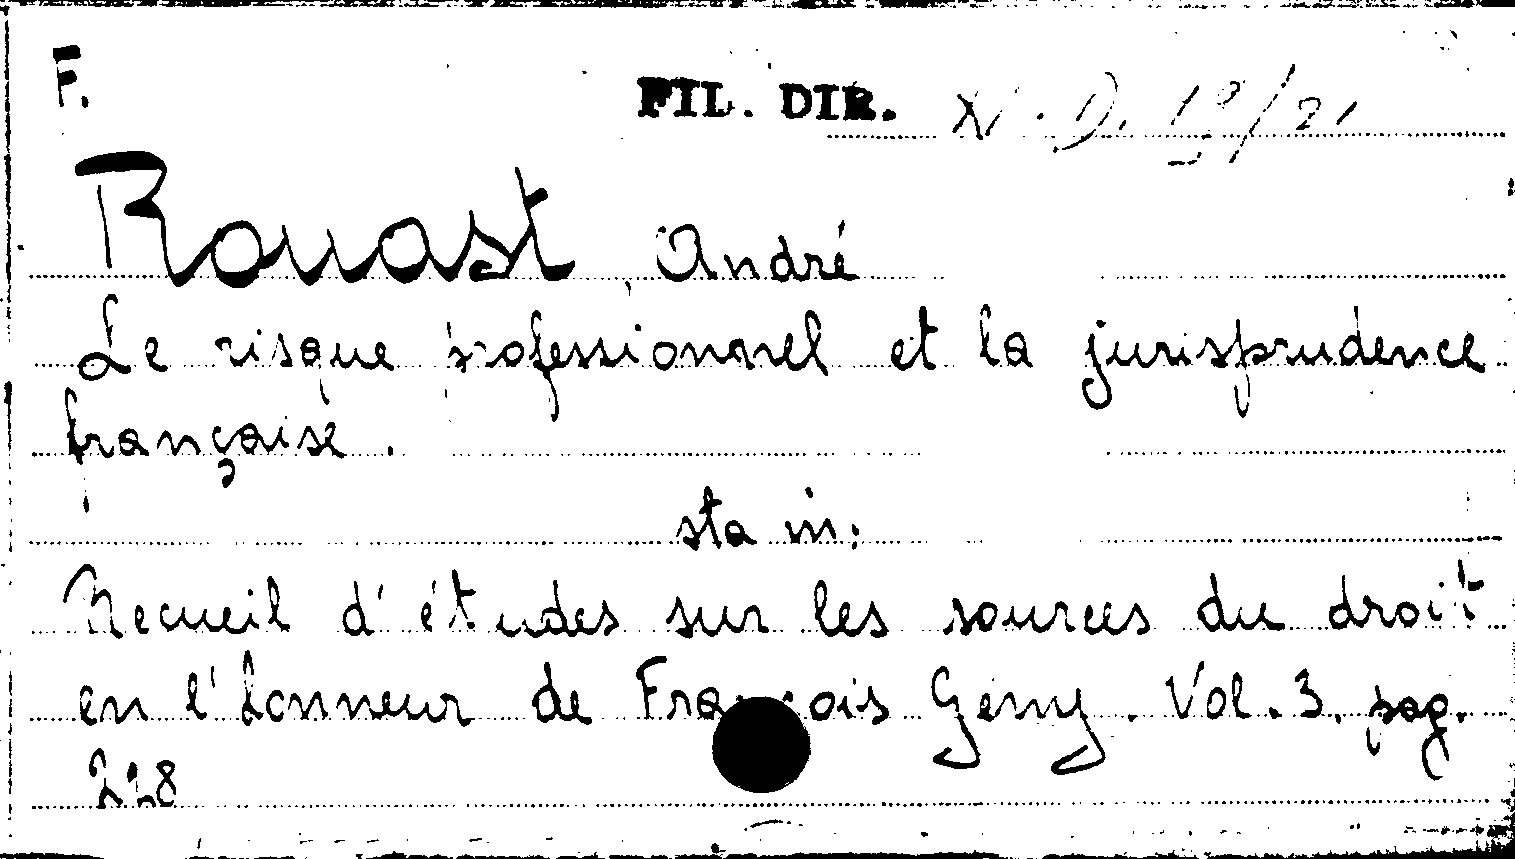 F.
FIL. DIR. N. D. 19/21
Rouast, André
Le risque professionnel et la jurisprudence
française.
sta in:
Recueil d'études sur les sources du droit
en l'honneur de François Geny. Vol. 3. pag.
228